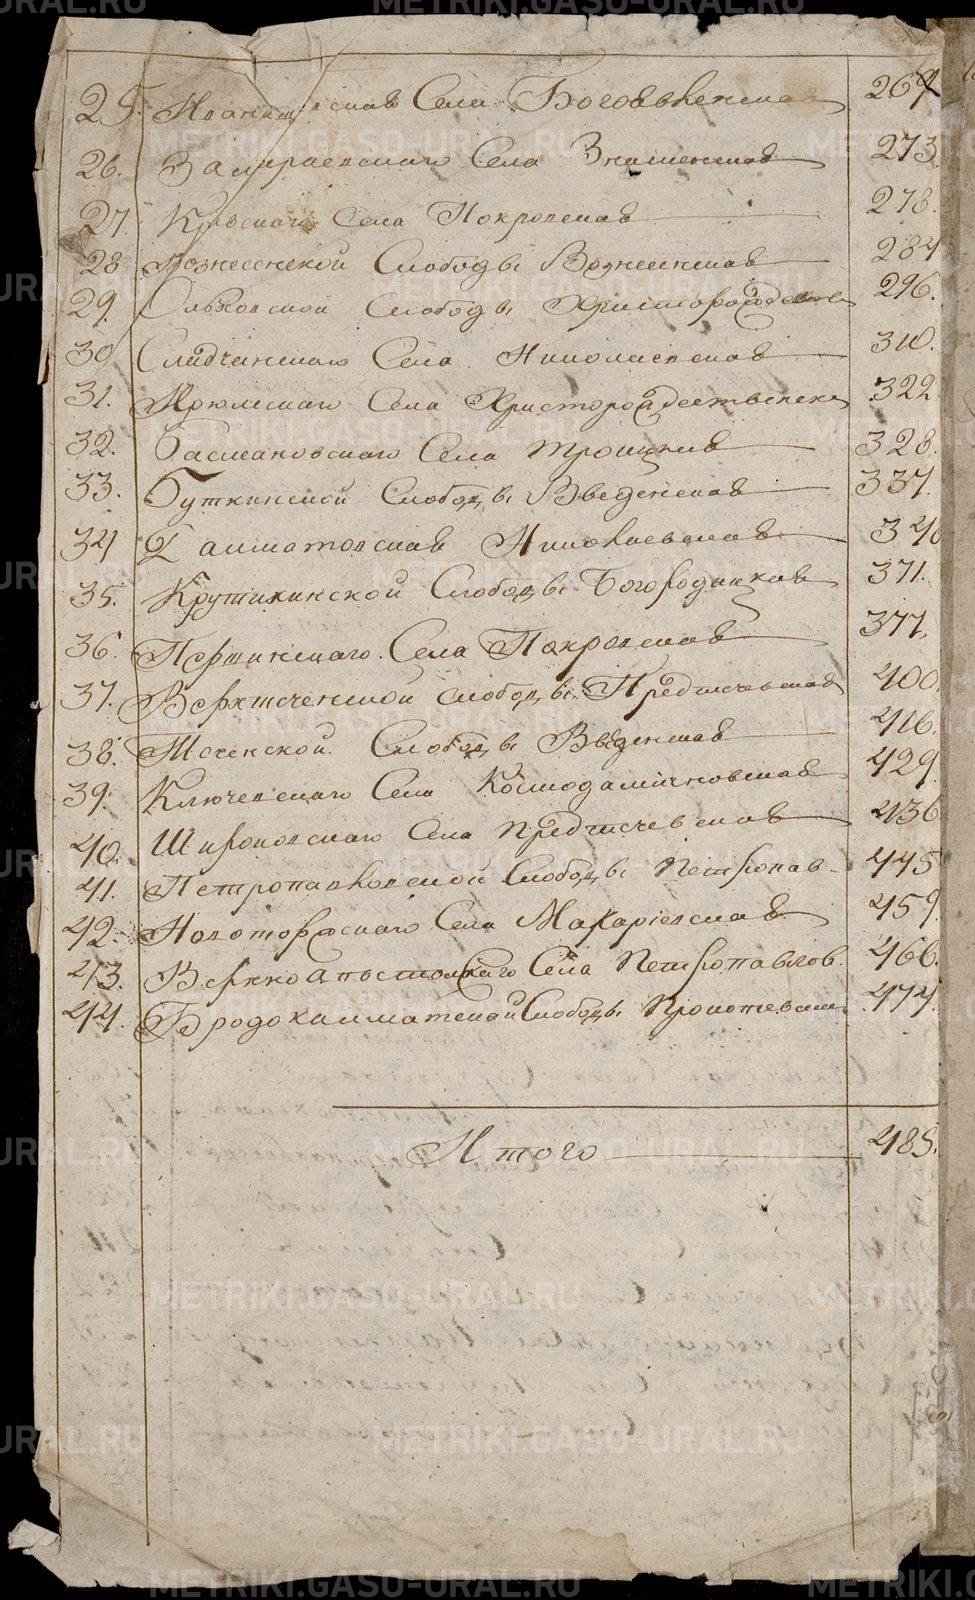 25. Иванищевскаго Села Богоявленская 264
26. Замараевскаго Села Знаменская 273.
27. Кривскаго Села Покровская 278.
28 Вознесенской Слободы Вознесенская 284
29. Слободы Христорождественская 296.
30 Сладчанскаго Села Николаевская 310.
31. Ярюмскаго Села Христорождественска 322
32. Басмановскаго Села Троицкая 328.
33. Буткинской Слободы Введенская 337.
34 Далматовская Николаевская 340
35. Крутихинской Слободы Богородицкая 371.
36. Першинскаго Села Покровская 377.
37. Верхтеченской слободы Предтечевская 400.
38. Теченской Слободы Введенская 416.
39. Ключевскаго Села Космодамиановская 429.
40. Широковскаго Села Предтечевская 436
41. Петропавловской Слободы Петропав- 445
42. Новоторжскаго Села Макариевская 459.
43. Верхно Села Петропавлов. 466.
44. Бродокалматской Слободы Прокопевская 474.
Итого 485.
METRIKI.GASO-URAL.RU